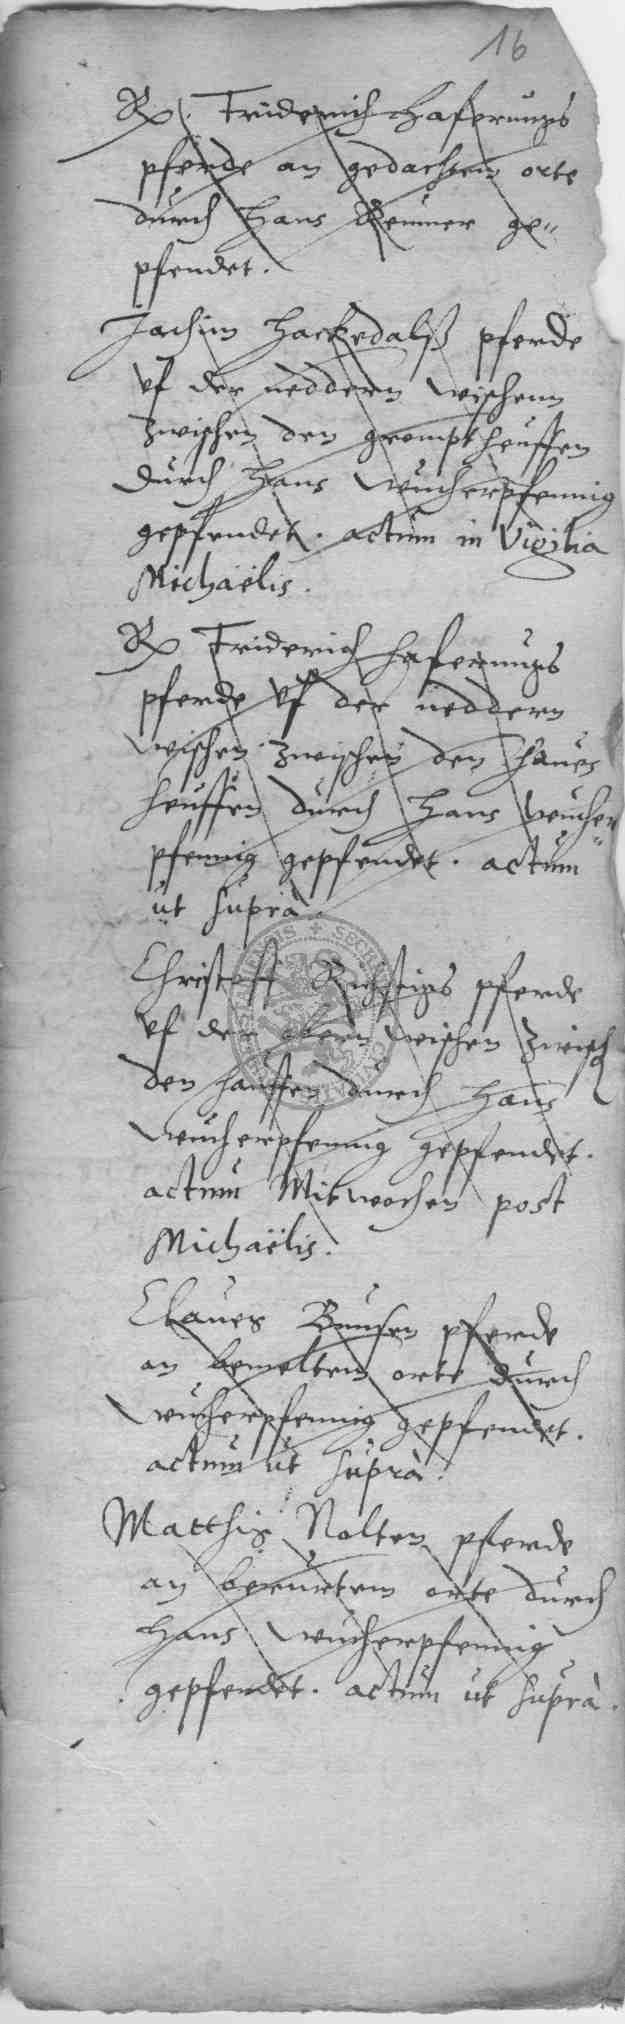 16
Rx. Friderich Haferungs
pferde an gedachtem orte
durch Hans Renner ge=
pfendet.
Jachim Hackedalß pferde
vf der neddern wischenn
zwischen den grompt heuffen
durch Hans Wucherpfennig
gepfendet. actum in Vigilia
Michaëlis.
Rx Friderich Haferungs
pferde vf der neddern
wischen zwischen den
heuffen durch Hans Wucher=
pfennig gepfendet. actum
ut suprà.
Christoff pferde
vf der obern wischen zwisch
den hauffen durch Hans
Wucherpfennig gepfendet.
actum Mitwochen post
Michaëlis.
Claues Bunsen pferde
an bemeltem orte durch
Wucherpfennig gepfendet.
actum ut suprà.
Matthis Nolten pferde
an berurtem orte durch
Hans Wucherpfennig
gepfendet. actum ut suprà.